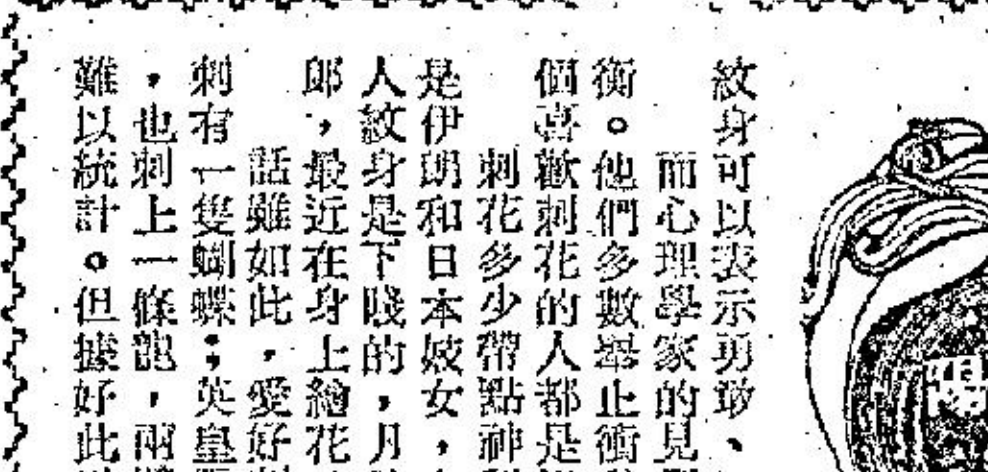 紋身可以表示勇敢、
而心理學家的見
衡。他們多數舉止衝
個喜歡刺花的人都是
刺花多少帶點神
是伊朗和日本妓女，
人紋身是下賤的，月
郎，最近在身上繪花
話雖如此，愛好
刺有一隻蝴蝶；英皇
，也刺上一條龍，兩
難以統計。但據好此